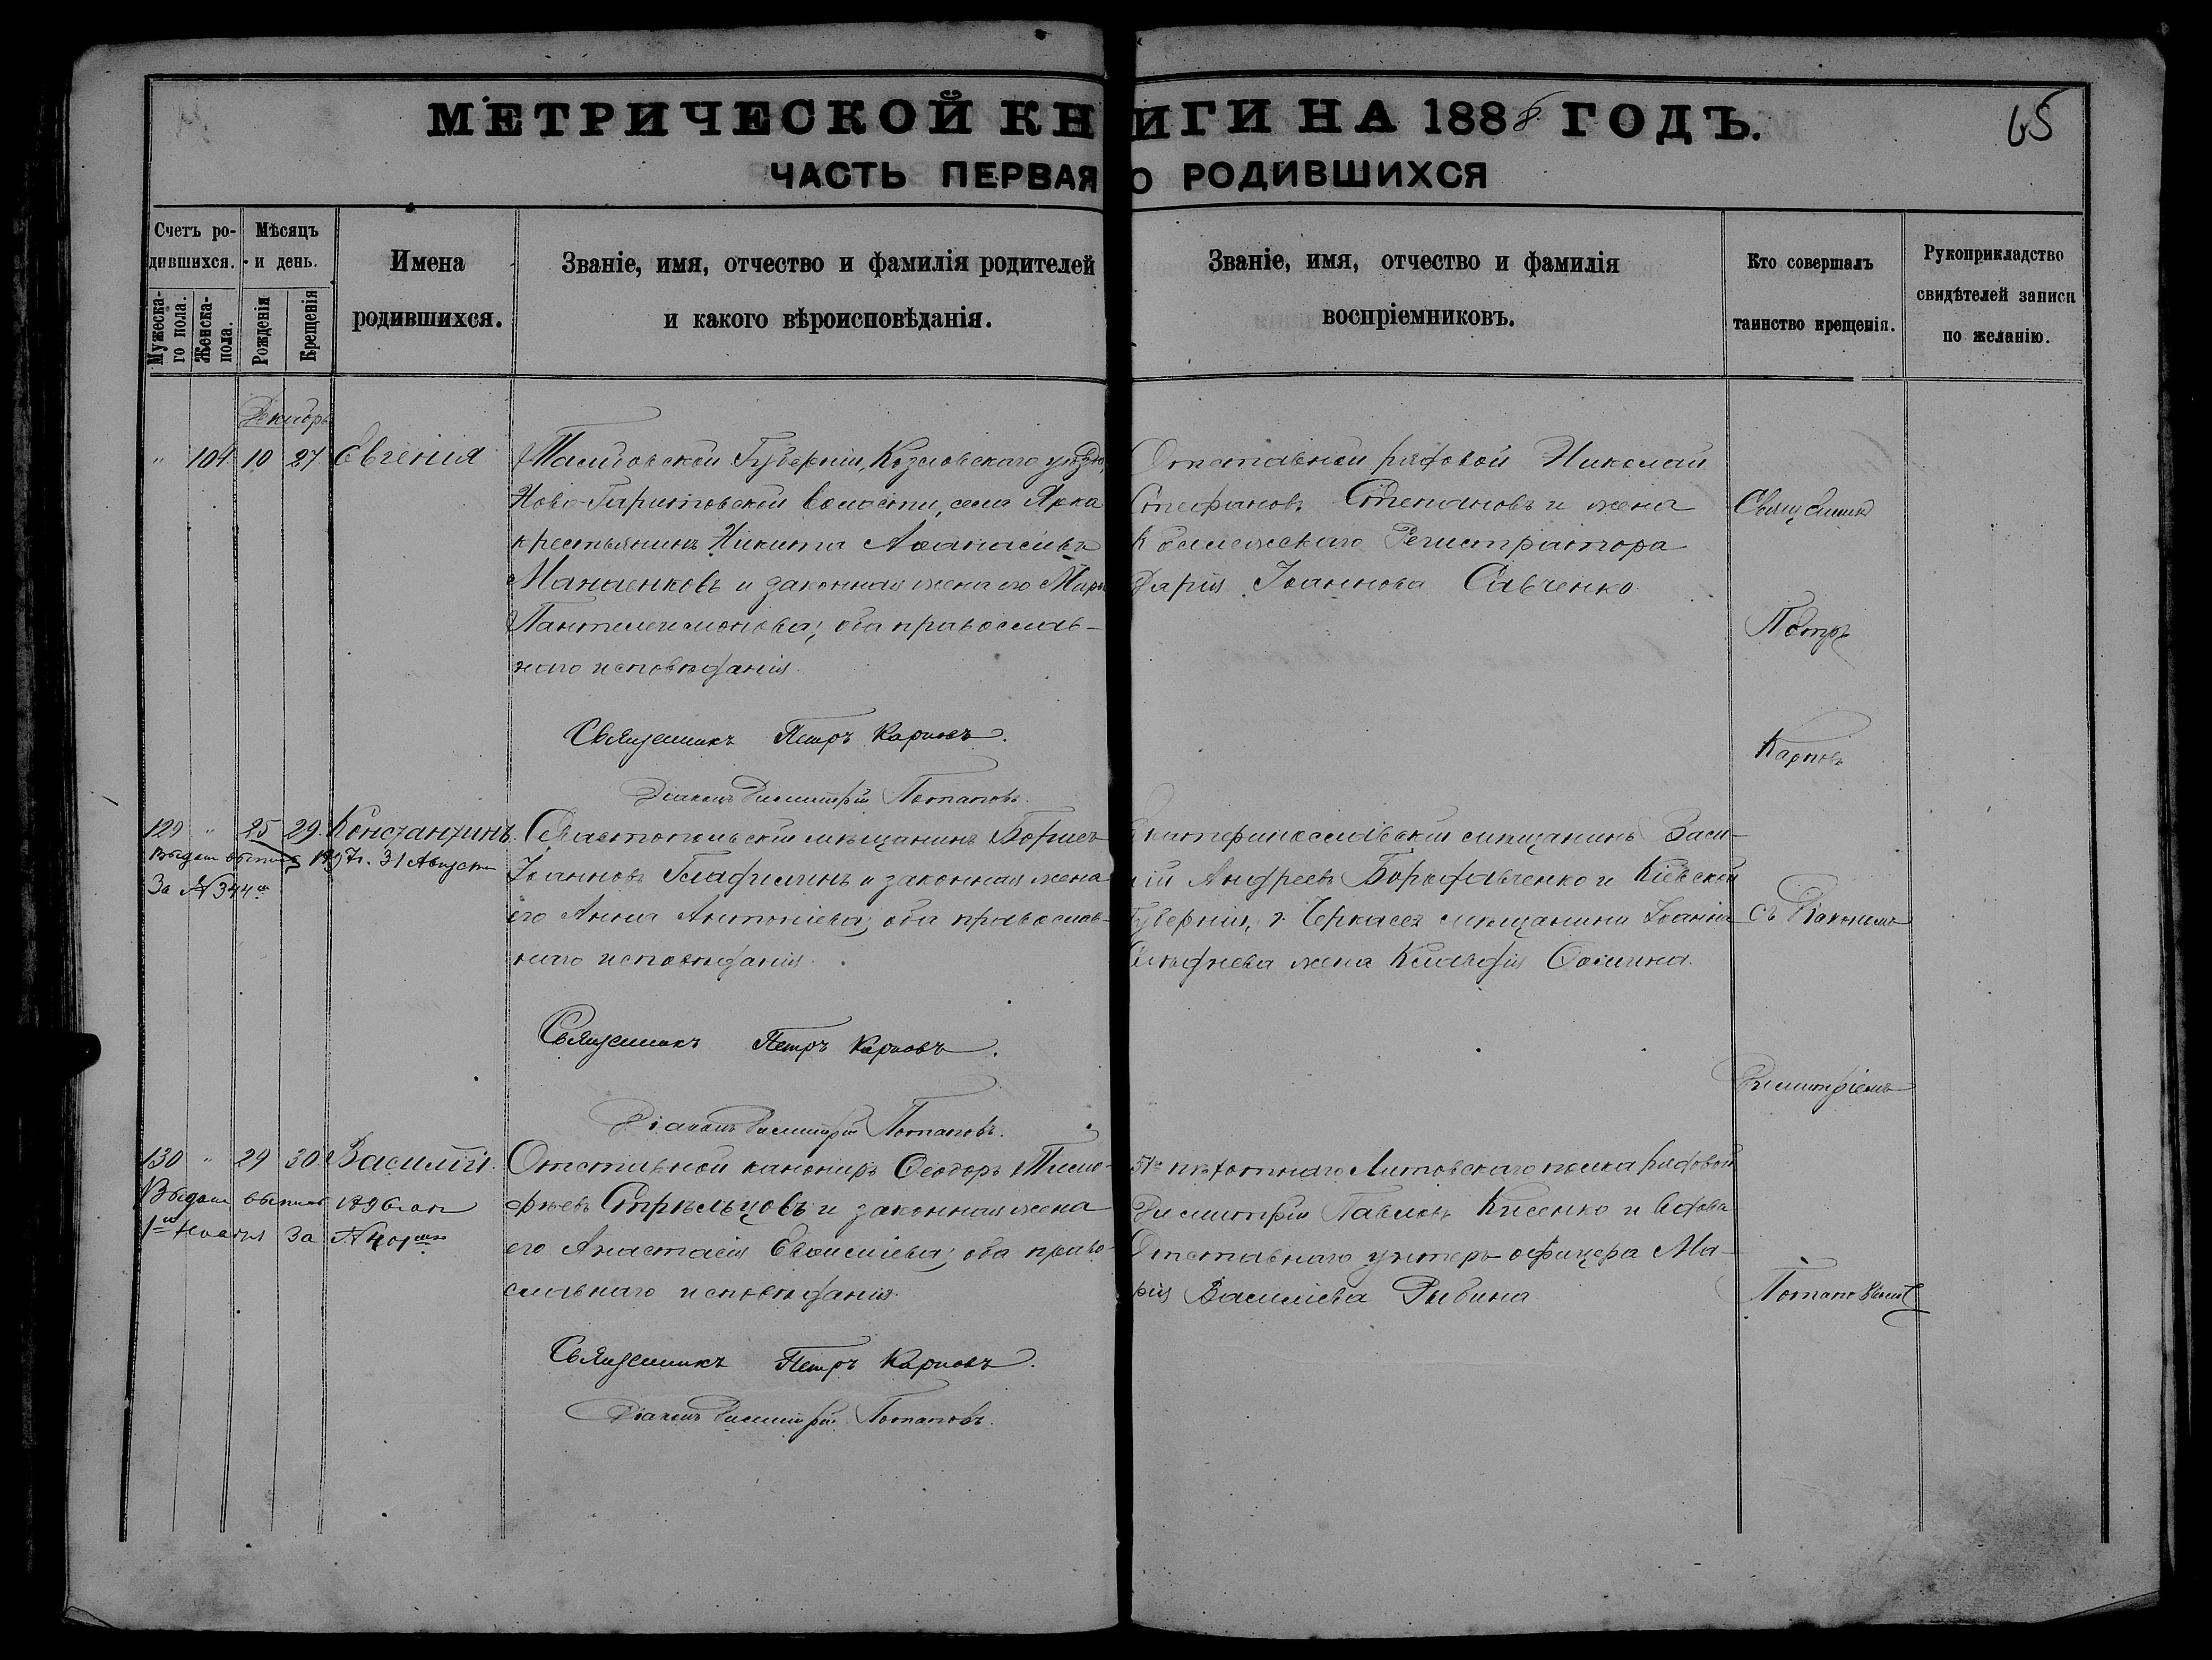 МЕТРИЧЕСКОЙ КНИГИ НА 1888 ГОДЪ.
65
ЧАСТЬ ПЕРВАЯ О РОДИВШИХСЯ
Счетъ родившихся.
Мужескаго пола.
Женска- пола.
Мѣсяцъ и день.
Рожденія
Крещенія
Имена
родившихся.
Званіе, имя, отчество и фамилія родителей
и какого вѣроисповѣданія.
Званіе, имя, отчество и фамилія
воспріемниковъ.
Кто совершалъ
таинство крещенія.
Рукоприкладство
свидѣтелей записи
по желанію.
Декабрь
" 104 10 27 Евгенія
Тамбовской Губерніи, Козловскаго уѣзда,
Ново-Гаритовской волости, села Ярка
крестьянинъ Никита Аѳанасіевъ
Манаенковъ и законная жена его Марѳа
Пантелеимонова; оба православ-
наго исповѣданія.
Священникъ Петръ Карповъ.
Діаконъ Димитрій Потаповъ.
Отставной рядовой Николай
Стефановъ Степановъ и жена
Коллежскаго Регистратора
Дарія Іоаннова Савченко.
Священникъ
Петръ
Карповъ
129 " 25 29 Константинъ.
Выдана выпись 1897г. 31 Августа
За № 344
Севастопольскій мѣщанинъ Борисъ
Іоанновъ и законная жена
его Анна Антоніева; оба православ-
наго исповѣданія.
Священникъ Петръ Карповъ.
Діаконъ Димитрій Потаповъ.
Екатеринославскій мѣщанинъ Васи-
лій Андреевъ и Кіевской
Губерніи, г. Черкасъ мѣщанина Іоанна
жена Клавдія Ѳомина.
съ Діакономъ
Димитріемъ
130 " 29 30 Василій.
Выдана выпись 1896
1 За № 401
Отставной канониръ Ѳеодоръ Тимо-
ѳеевъ Стрѣльцовъ и законная жена
его Анастасія; оба право-
славнаго исповѣданія.
Священникъ Петръ Карповъ.
Діаконъ Димитрій Потаповъ.
51го пѣхотнаго Литовскаго полка рядовой
Димитрій Павловъ Кисенко и вдова
Отставнаго унтеръ-офицера Ма-
рія Василіева Рыбина.
Потаповымъ